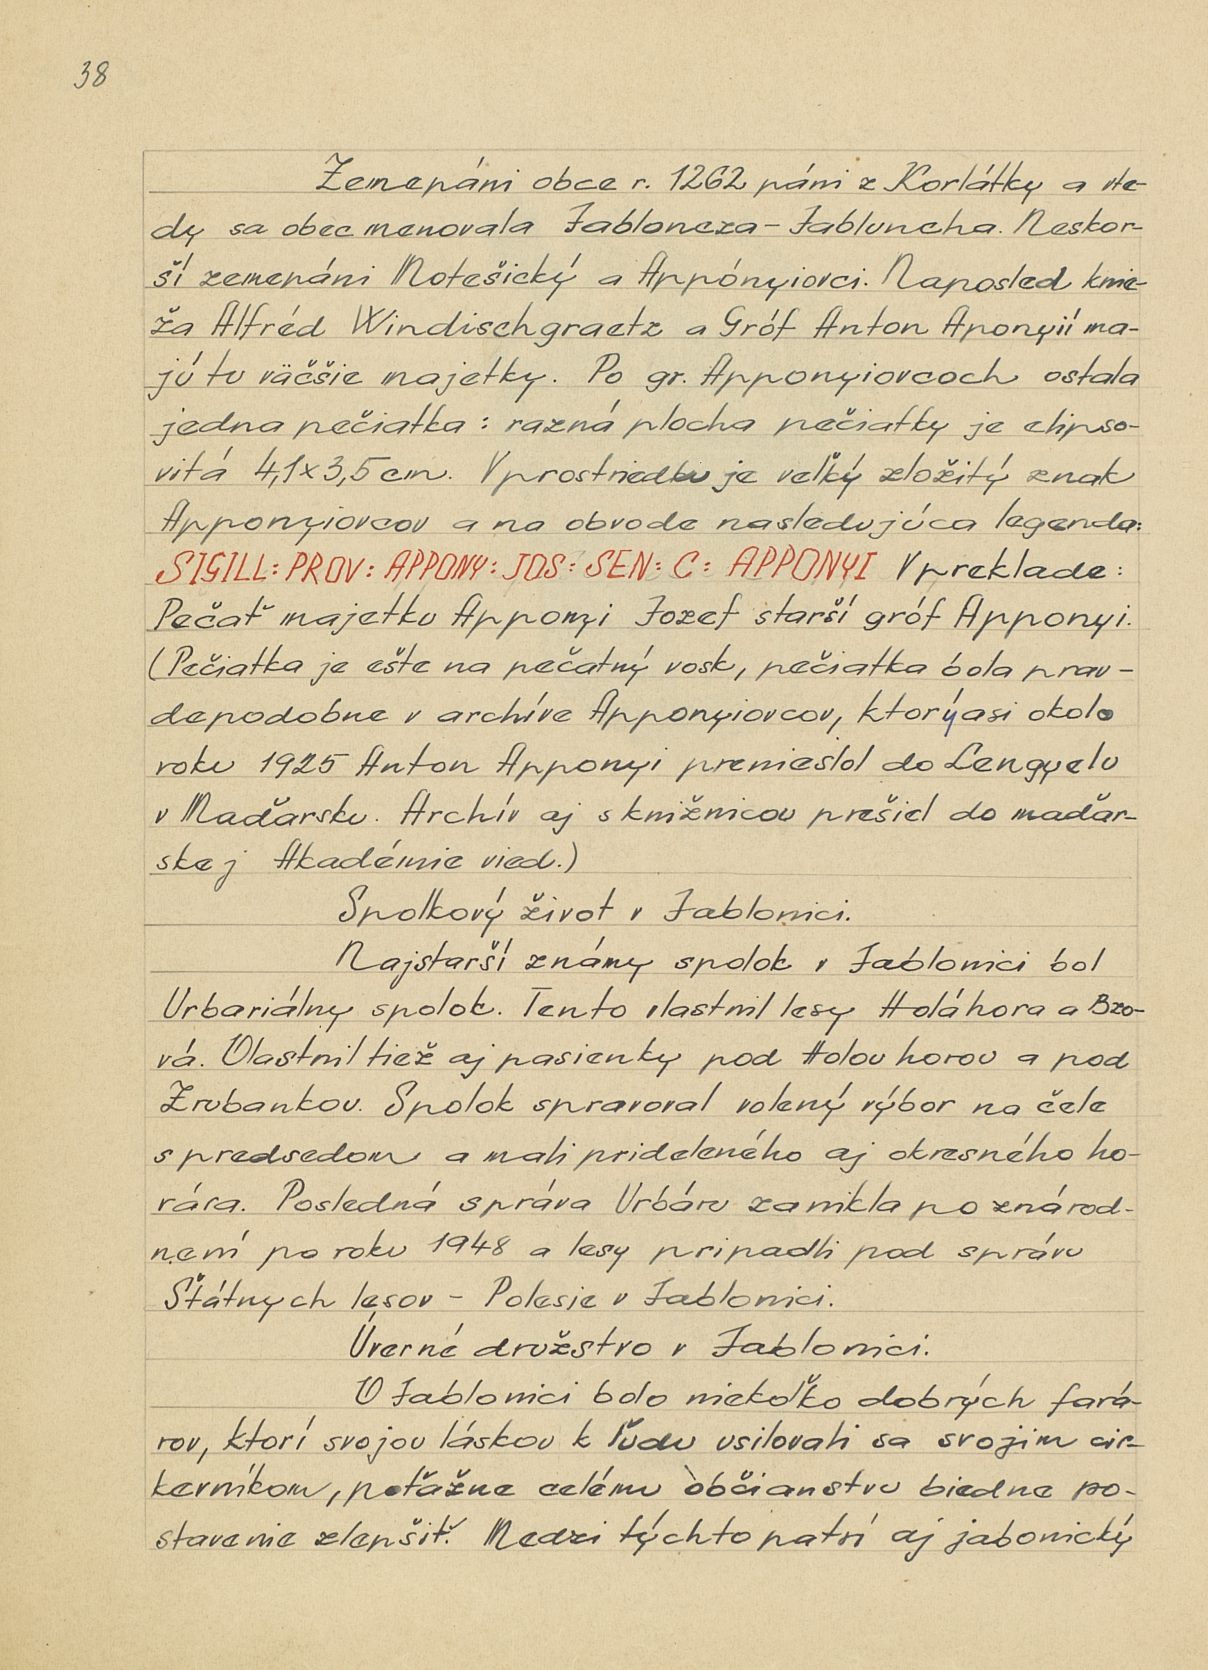 38
Zemepáni obce r. 1262 páni z Korlátky a vte-
dy sa obec menovala Jabloncza - Jabluncha. Neskor-
ší zemepáni Motešický a Appónyiovci. Naposled knie-
ža Alfréd Windischgraetz a Gróf Anton Aponyií ma-
jú tu väčšie majetky. Po gr. Apponyiovcoch ostala
jedna pečiatka: razná plocha pečiatky je elipso-
vitá 4,1x3,5 cm. V prostriedku je veľký zložitý znak
Apponyiovcov a na obvode nasledujúca legenda:
SIGILL: PROV: APPONY: JOS: SEN: C: APPONYI V preklade:
Pečať majetku Appomyi Jozef starší gróf Apponyi.
(Pečiatka je ešte na pečatný vosk, pečiatka bola prav-
depodobne v archíve Apponyiovcov, ktorý asi okolo
roku 1925 Anton Apponyi premiestol do Lengyelu
v Maďarsku. Archív aj s knižnicou prešiel do maďar-
skej Akadémie vied.)
Spolkový život v Jablonici.
Najstarší známy spolok v Jablonici bol
Urbariálny spolok. Tento vlastnil lesy Holáhora a Bzo-
vá. Vlastnil tiež aj pasienky pod Holou horou a pod
Zrubankou. Spolok spravoval volený výbor na čele
s predsedom a mali prideleného aj okresného ho-
rára. Posledná správa Urbáru zanikla po znárod-
není po roku 1948 a lesy pripadli pod správu
Štátnych lesov - Polesie v Jablonici.
Úverné družstvo v Jablonici.
V Jablonici bolo niekoľko dobrých fará-
rov, ktorí svojou láskou k ľudu usilovali sa svojim cir-
kevníkom, poťažne celému občianstvu biedne po-
stavenie zlepšiť. Medzi týchto patrí aj jabonický